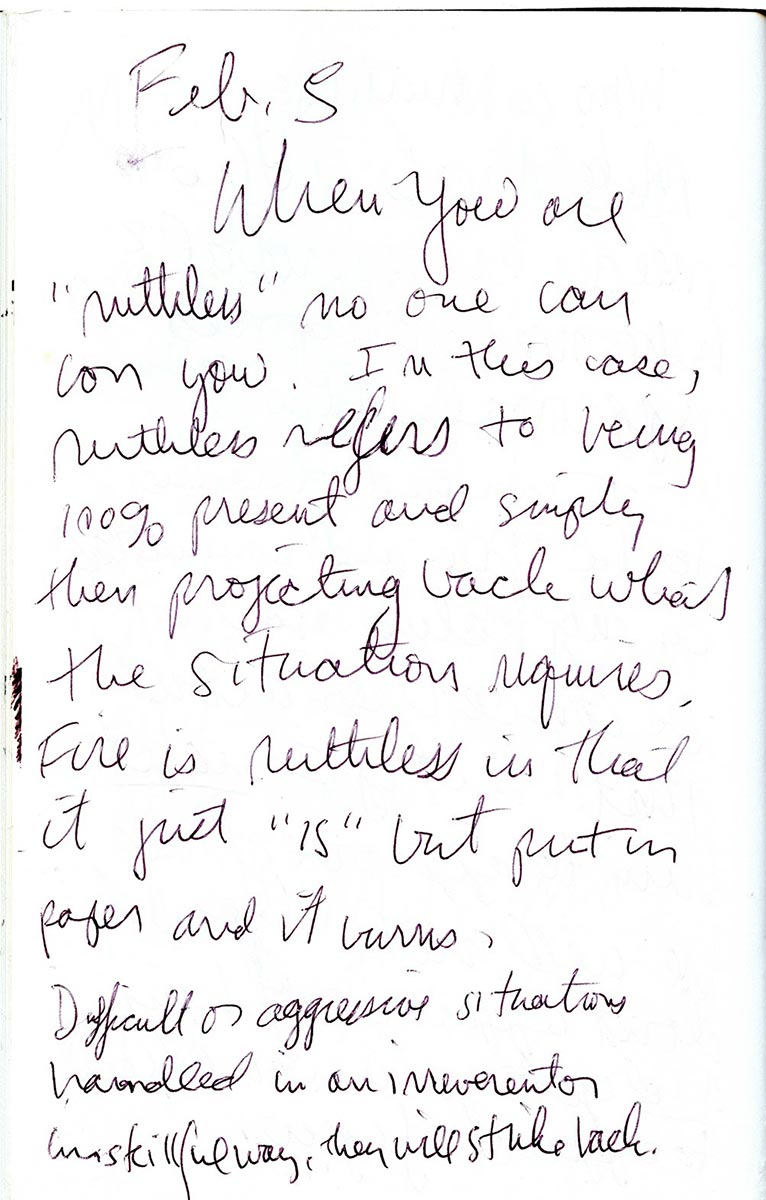 Feb. 5
When you are
"ruthless" no one can
con you. In this case,
ruthless refers to being
100% present and simply
then projecting back what
the situation requires.
Fire is ruthless in that
it just "is" but put in
paper and it burns.
Difficult or aggressive situations
handled in an irreverent or
unskillful way, they will strike back.